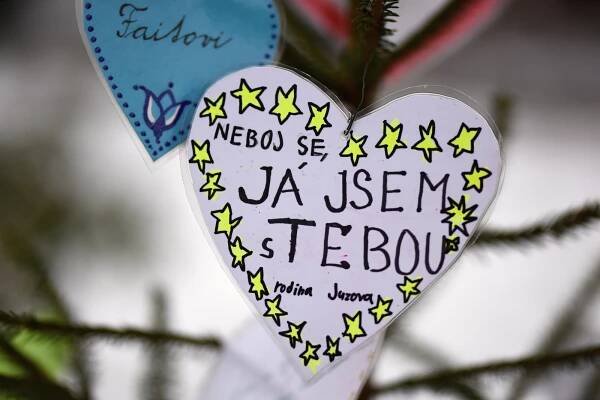 Faitovi
NEBOJ SE,
JÁ JSEM
s TEBOU
rodina Juzova